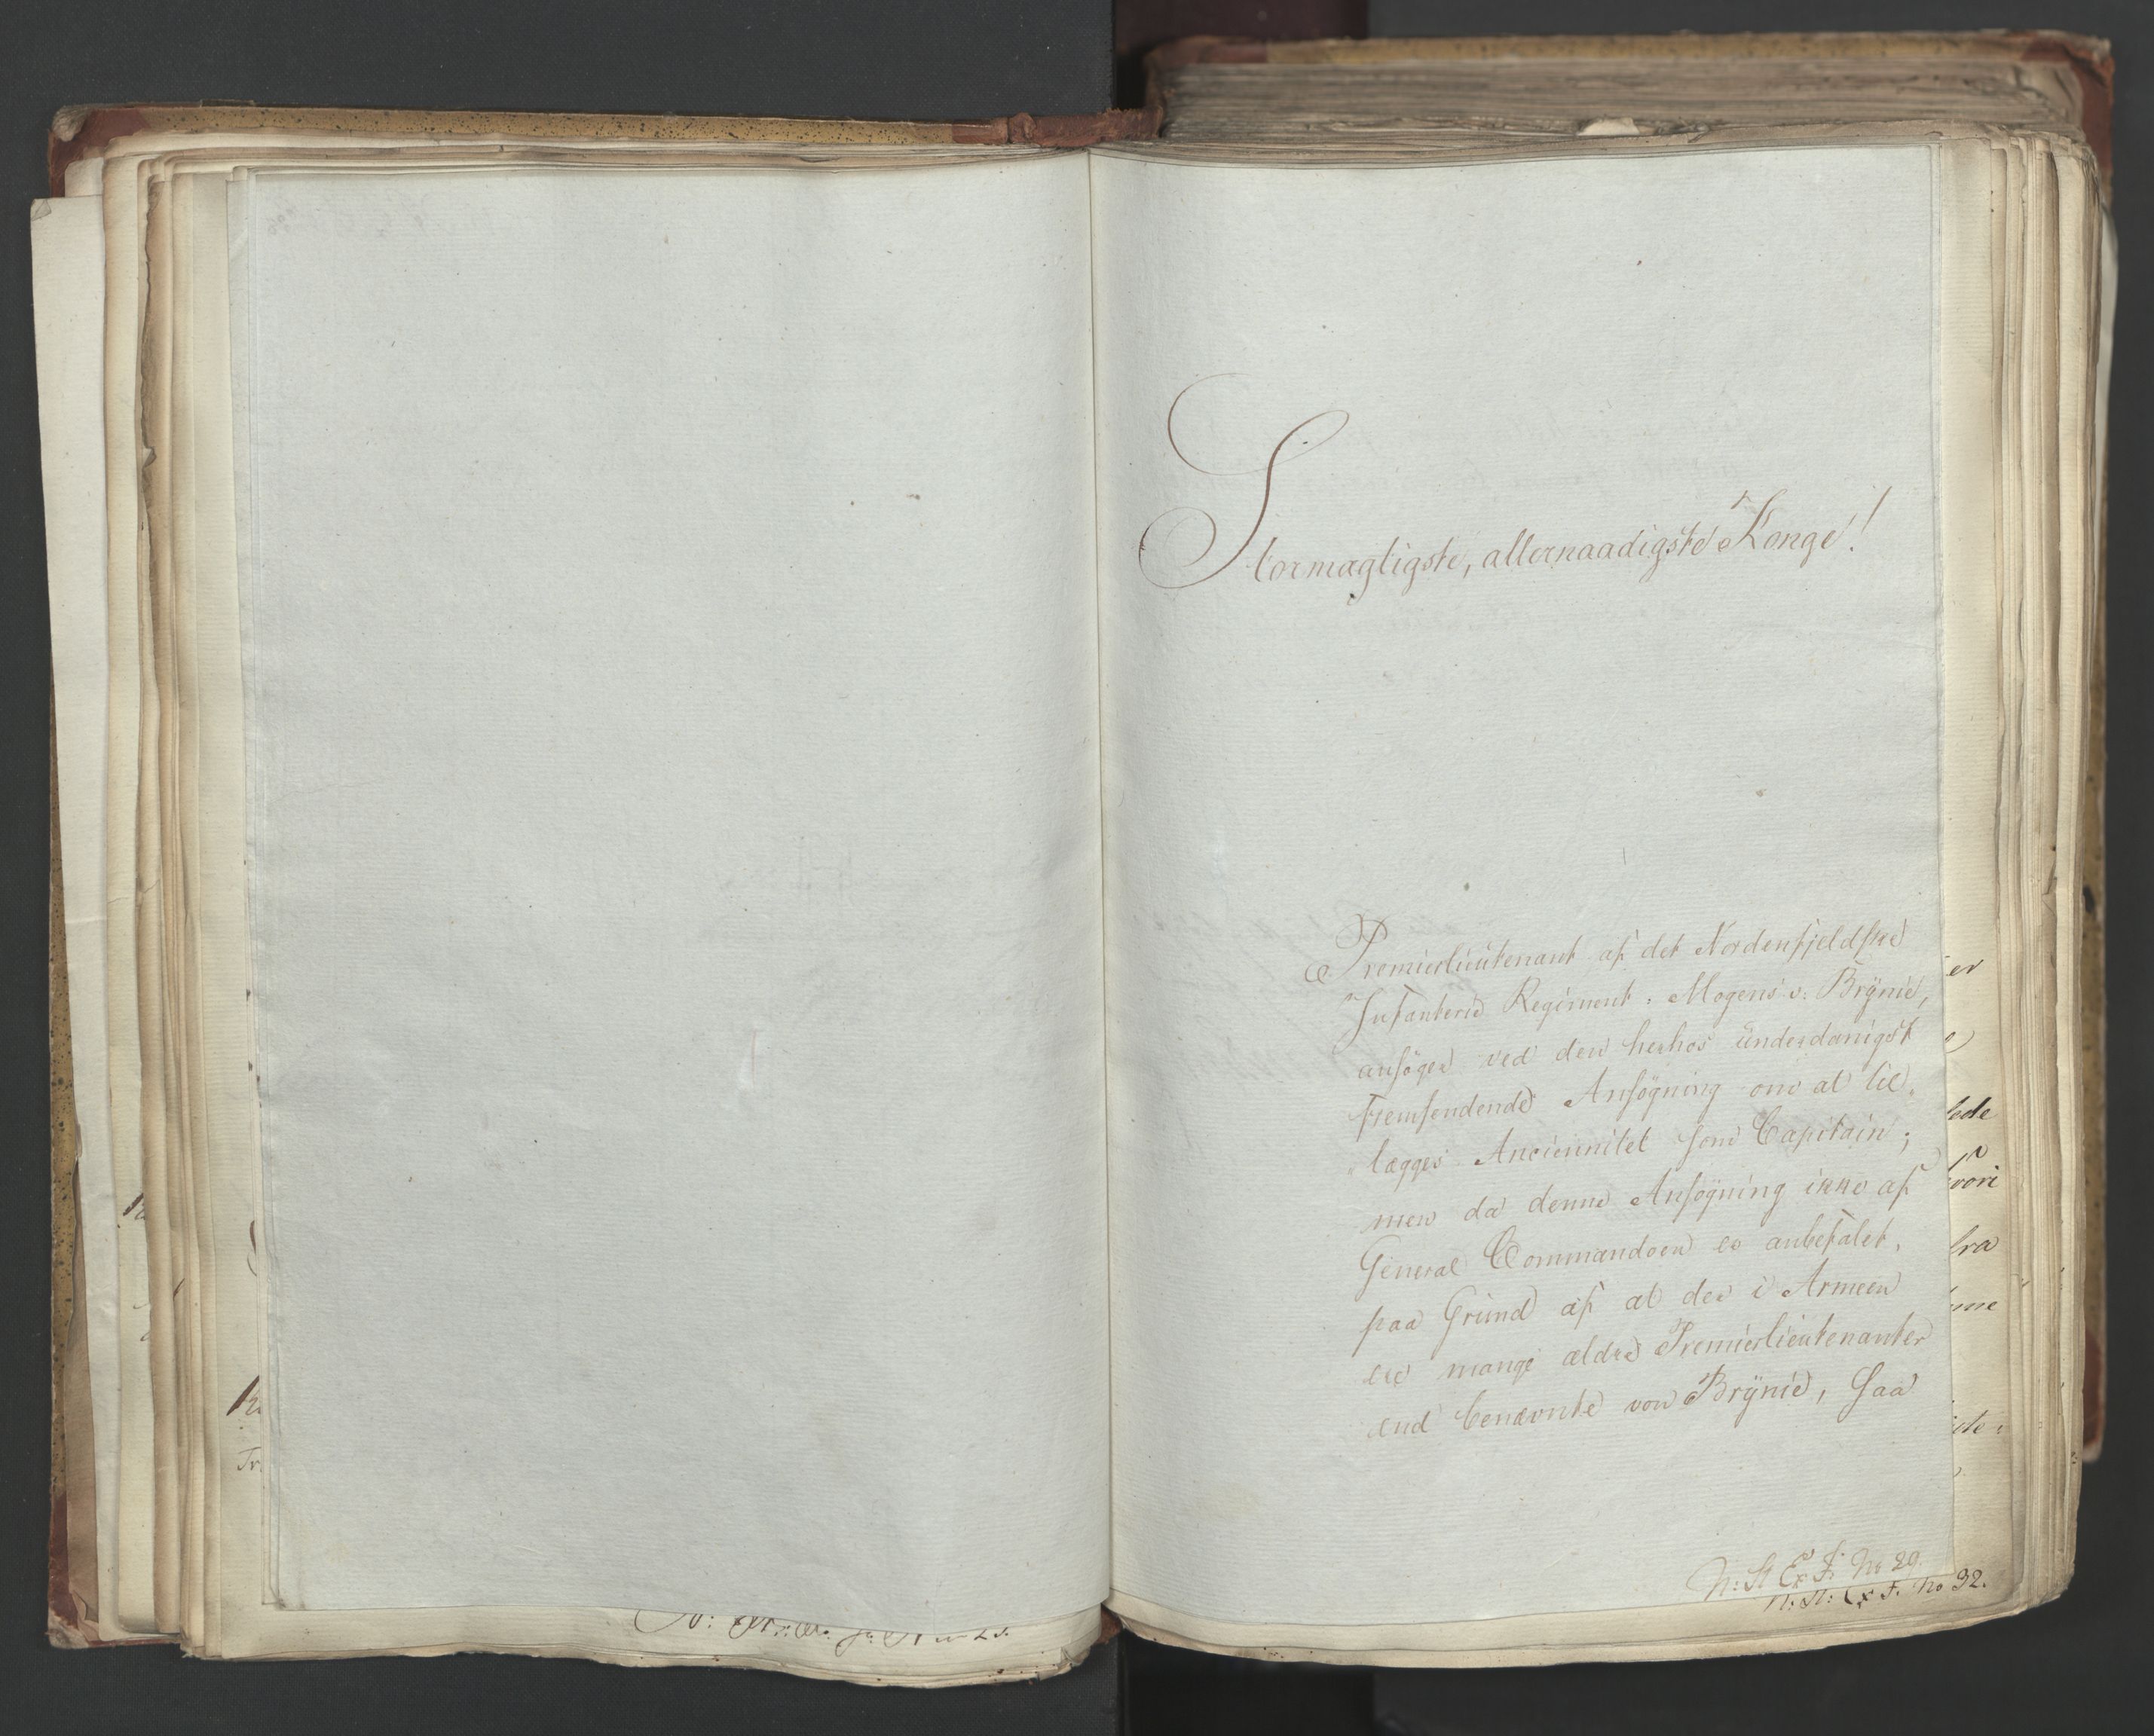 Stormægtigste, allernaadigste Konge!
Premierlieutenant af det Nordenfjeldske
Infanterie Regiment, Mogens v: Brÿnie,
ansøger ved den herhos underdanigst
fremsendende Ansøgning om at til„
„lægges Anciennitet som Capitain;
men da denne Ansøgning ikke af
General Commandoen er anbefalet,
paa Grund af at der i Armeen
ere mange ældre Premierlieutenanter
end benævnte von Brÿnie, saa
N: St Ex F. No 29.
N: St: Ex F. No 32.